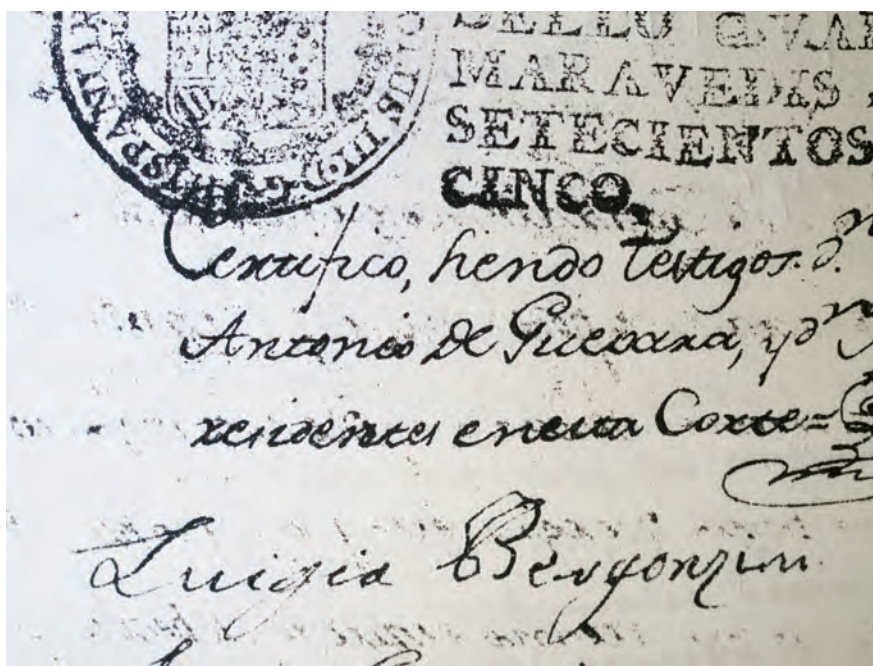 HISPANI
OLUS III. D. G.
SELLO QVAR
MARAVEDIS,
SETECIENTOS
CINCO.
Certifico, siendo testigos. d.n
Antonio de Guevara, y d.n
residentes en esta Corte=
Luigia Bergonzini